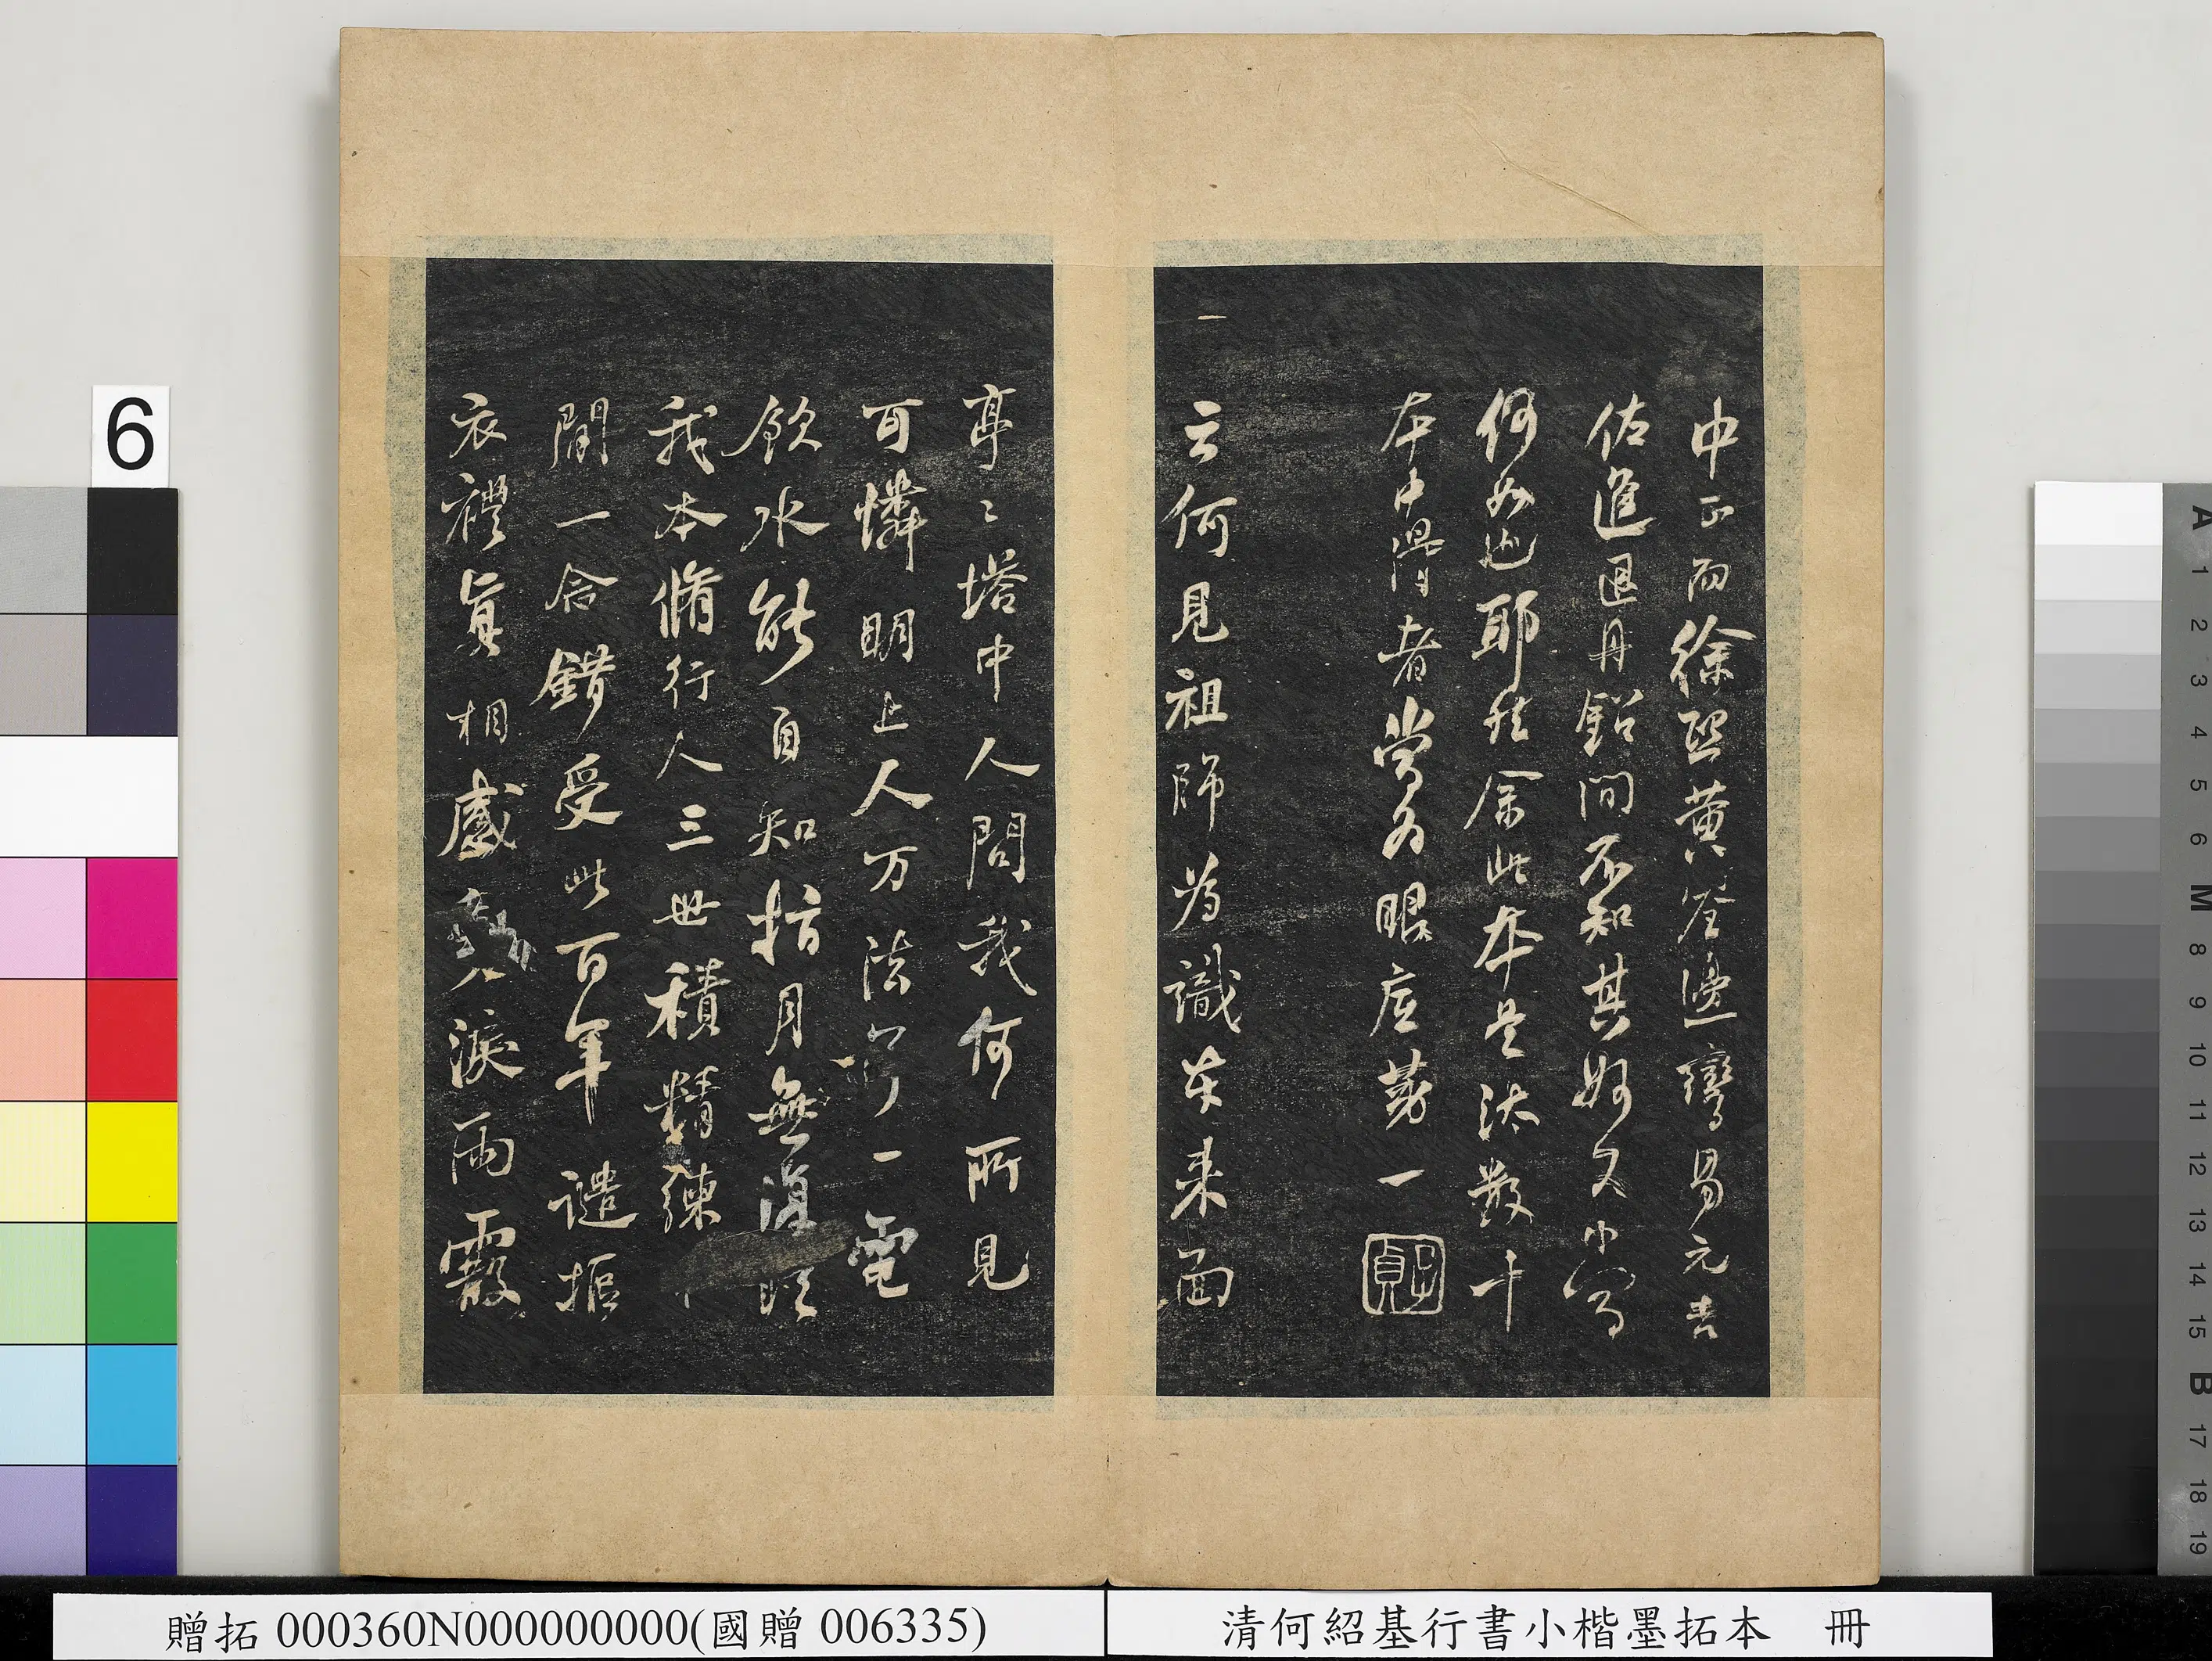 中正而徐熙黃筌邊鸞易元吉
佐進退丹鉛間不知其好又小當
何如也耶然余此本是汰數十
本中得者當為眼底第一
子貞
云何見祖師為識本来面
亭〻塔中人問我何所見
可憐明上人万法了一電
飲水能自知指月無復眩
我本脩行人三世積精練
中
間一念錯受此百年譴摳
衣禮真相感動淚雨霰
6
贈拓 000360N000000000(國贈 006335)
清何紹基行書小楷墨拓本 冊
A 1 2 3 4 5 6 M 8 9 10 11 12 13 14 15 B 17 18 19